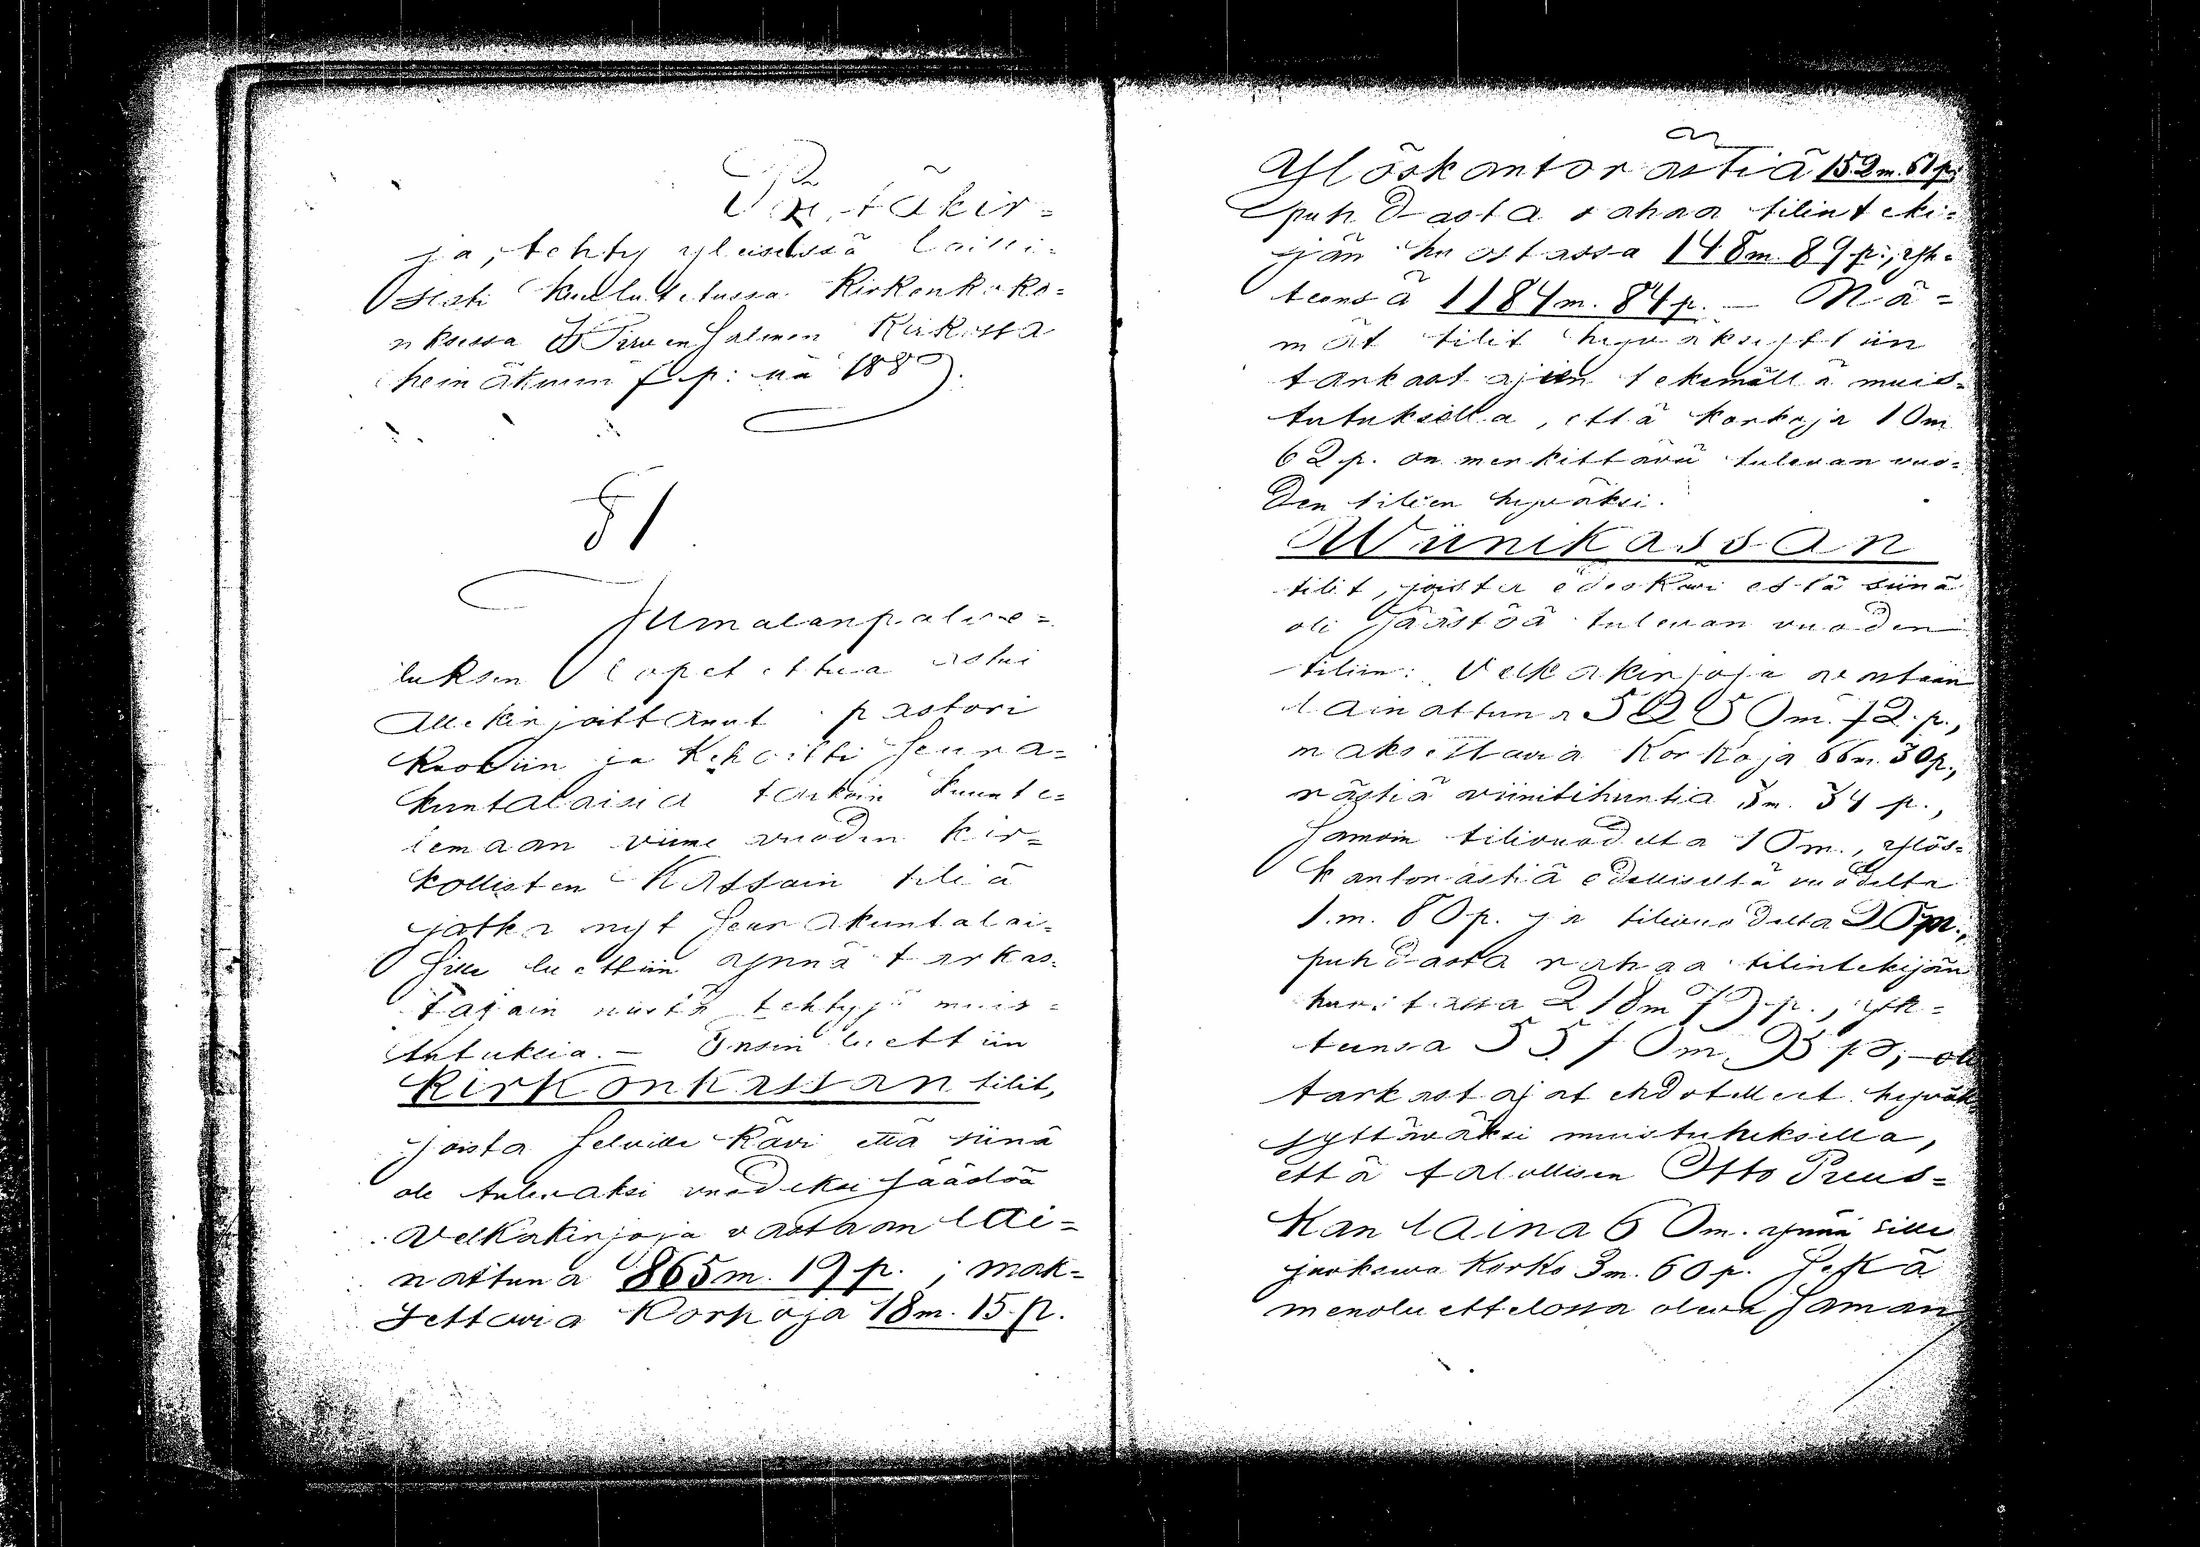 Pöytäkir-
ja, tehty yleisessä lailli-
sesti kuulutetussa Kirkonkoko-
uksessa Hirvensalmen Kirkossa
heinäkuun p: nä 188
§ 1
Jumalanpalve-
luksen lopetettua astui
Allekirjoittanut pastori
Kuoriin ja Kehoitti Seura-
kuntalaisia tarkoin kuunte-
lemaan viime vuoden kir-
kollisten Kassain tiliä
jotka nyt Seurakuntalai-
sille luettiin ynnä tarkas-
tajain niistä tehtyjä muis-
tutuksia. — Ensin luettiin
Kirkonkassan tilit,
joista Selville Kävi että siinä
oli tulevaksi vuodeksi säästöä
Velkakirjoja vastaan lai-
nattuna 865 m. 19 p. ; mak-
settavia Korkoja 18 m. 15 p.
Ylöskantorästiä 152 m. 61 p;
puhdasta rahaa tilinteki-
jän huostassa 148 m. 89 p:, yh-
teensä 1184 m. 84 p. — Nä-
mät tilit hyväksyttiin
tarkastajien tekemällä muis-
tutuksella, että Korkoja 10 m
62 p. on merkittävä tulevan vuo-
den tilien hyväksi.
Wiinikassan
tilit, joista edeskävi että siinä
oli Säästöä tulevan vuoden
tiliin: Velkakirjoja vastaan
lainattuna 5250 m. 72 p.,
maksettavia Korkoja 66 m. 30 p.,
rästiä viinitihuntia 3 m. 34 p.,
Samoin tilivuodelta 10 m., ylös-
kantorästiä edelliseltä vuodelta
1 m. 80 p. ja tilivuodelta 20 m.,
puhdasta rahaa tilintekijän
huostassa 218 m 79 p., yh-
teensä 5570 m. 95 p:ä, — oli
tarkastajat ehdotelleet hyväk-
syttäväksi muistutuksella,
että talollisen Otto Pruus-
Kan laina 60 m. ynnä sille
juokseva Korko 3 m. 60 p. Sekä
menoluettelossa oleva Saman